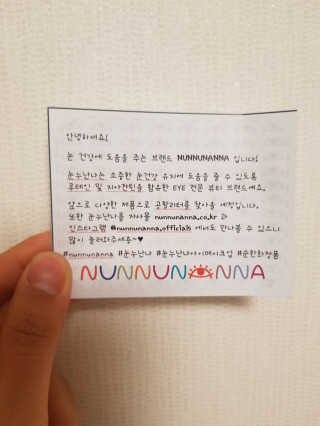 안녕하세요!
눈 건강에 도움을 주는 브랜드 NUNNUNANNA 입니다!
눈누난나는 소중한 눈건강 유지에 도움을 줄 수 있도록
루테인 및 지아잔틴을 함유한 EYE 전문 뷰티 브랜드에요.
앞으로 다양한 제품으로 고객님들을 찾아올 예정입니다.
또한 눈누난나를 자사몰 nunnunanna.co.kr
인스타그램 @nunnunanna.officials 에서도 만나볼 수 있으니
많이 놀러와주세용~♥
#nunnunanna #눈누난나 #눈누난나아이메이크업 #순한화장품
NUNNUNANNA